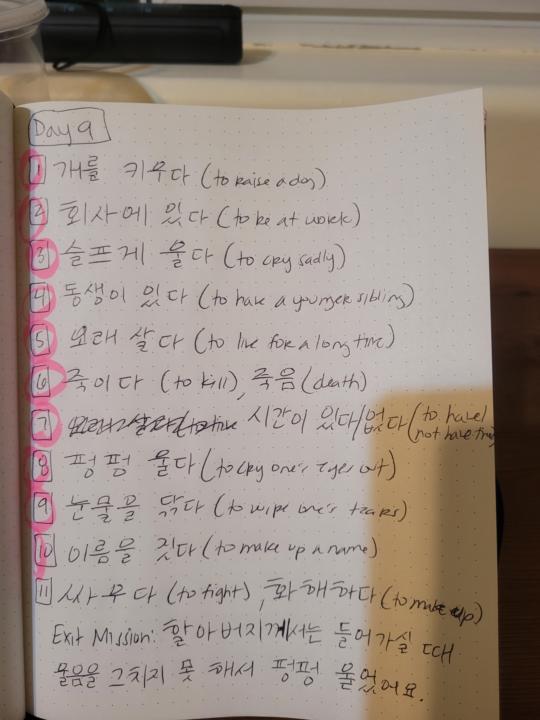 Day 9
1 개를 키우다 (to raise a dog)
2 회사에 있다 (to be at work)
3 슬프게 울다 (to cry sadly)
4 동생이 있다 (to have a younger sibling)
5 오래 살다 (to live for a long time)
6 죽이다 (to kill), 죽음 (death)
7 시간이 있다/없다 (to have/
not have time)
8 펑펑 울다 (to cry one's eyes out)
9 눈물을 닦다 (to wipe one's tears)
10 이름을 짓다 (to make up a name)
11 싸우다 (to fight), 화해하다 (to make up)
Exit Mission: 할아버지께서는 들어가실 때
울음을 그치지 못 해서 펑펑 울었어요.